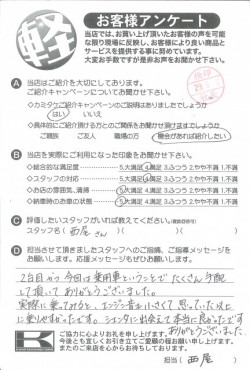 軽
お客様アンケート
当店では、お買い上げ頂いたお客様の声を可能
な限り現場に反映し、お客様により良い商品と
サービスを提供する事に努めています。
大変お手数ですが是非お声をお聞かせ下さい。
A 当店はご紹介を大切にしております。
ご紹介キャンペーンについてお聞かせ下さい
◇カミタケご紹介キャンペーンのご説明はありましたでしょうか
はい いいえ
◇具体的にご紹介頂ける方とのご関係をお聞かせ頂けますでしょうか
ご親族 ご友人 職場の方 機会があれば紹介したい
B 当店を実際にご利用になった印象をお聞かせ下さい。
◇総合的な満足度 5.大満足 4.満足 3.ふつう 2.やや不満 1.不満
◇スタッフの対応 5.大満足 4.満足 3.ふつう 2.やや不満 1.不満
◇お店の雰囲気、清掃 5.大満足 4.満足 3.ふつう 2.やや不満 1.不満
◇納車時のお車の状態 5.大満足 4.満足 3.ふつう 2.やや不満 1.不満
C 評価したいスタッフがいれば教えてください。(複数回答可)
スタッフ名( 西尾さん )
D 担当させて頂きましたスタッフへのご指摘、ご指導メッセージを
お願いします。ご声援、ご指導、応援メッセージ
2台目かつ今回は乗用車ということで たくさん手配
して頂いて ありがとうございました。
実際に乗ってみると、エンジン音も小さくて思っていた以上
に乗りやすかったです。シエンタに出会えて本当に良かったです
ありがとうございました。
ご協力に心よりお礼を申し上げます。
今後とも宜しくお引立てご愛顧の程お願い申し上げます。
またのご来店を心からお待ちしております。
担当( 西尾 )